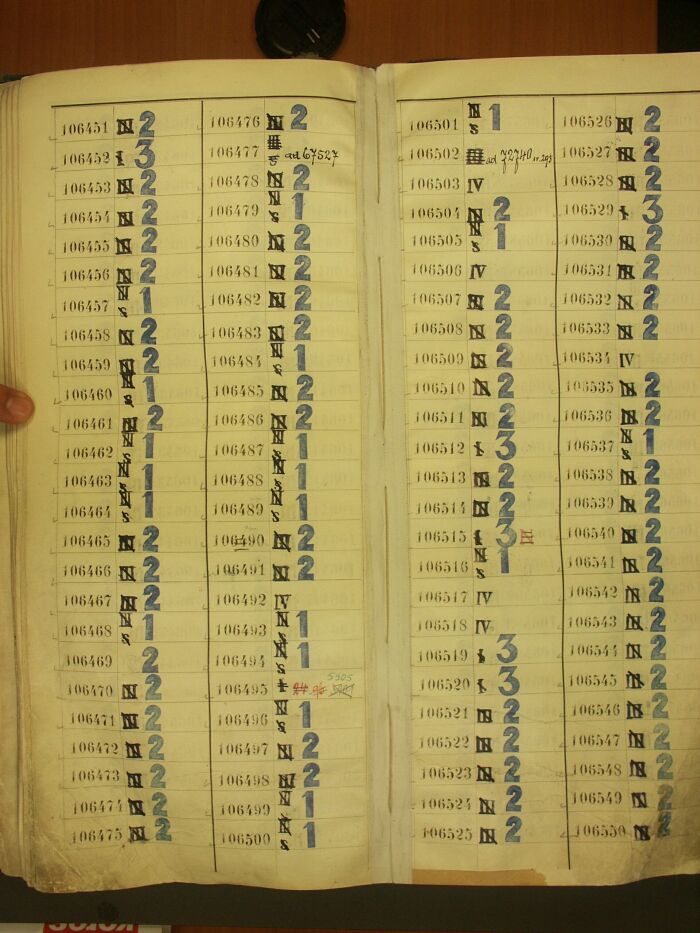 106451 N 2
106452 t 3
106453 N 2
106454 N 2
106455 N 2
106456 N 2
106457 N s 1
106458 N 2
106459 N 2
106460 N s 1
106461 N 2
106462 N s 1
106463 N s 1
106464 N s 1
106465 N 2
106466 N 2
106467 N 2
106468 N s 1
106469 2
106470 N 2
106471 N 2
106472 N 2
106473 N 2
106474 N 2
106475 N 2
106476 N 2
106477 s ad 67527
106478 N 2
106479 N s 1
106480 N 2
106481 N 2
106482 N 2
106483 N 2
106484 N s 1
106485 N 2
106486 N 2
106487 N s 1
106488 N s 1
106489 N s 1
106490 N 2
106491 N 2
106492 IV
106493 N s 1
106494 N s 1
106495 t 5305
106496 N s 1
106497 N 2
106498 N 2
106499 N s 1
106500 N s 1
106501 N s 1
106502 ad 72740
106503 IV
106504 N 2
106505 N s 1
106506 IV
106507 N 2
106508 N 2
106509 N 2
106510 N 2
106511 N 2
106512 t 3
106513 N 2
106514 N 2
106515 t 3 N
106516 N s 1
106517 IV
106518 IV
106519 t 3
106520 t 3
106521 N 2
106522 N 2
106523 N 2
106524 N 2
106525 N 2
106526 N 2
106527 N 2
106528 N 2
106529 t 3
106530 N 2
106531 N 2
106532 N 2
106533 N 2
106534 IV
106535 N 2
106536 N 2
106537 N s 1
106538 N 2
106539 N 2
106540 N 2
106541 N 2
106542 N 2
106543 N 2
106544 N 2
106545 N 2
106546 N 2
106547 N 2
106548 N 2
106549 N 2
106550 N 2